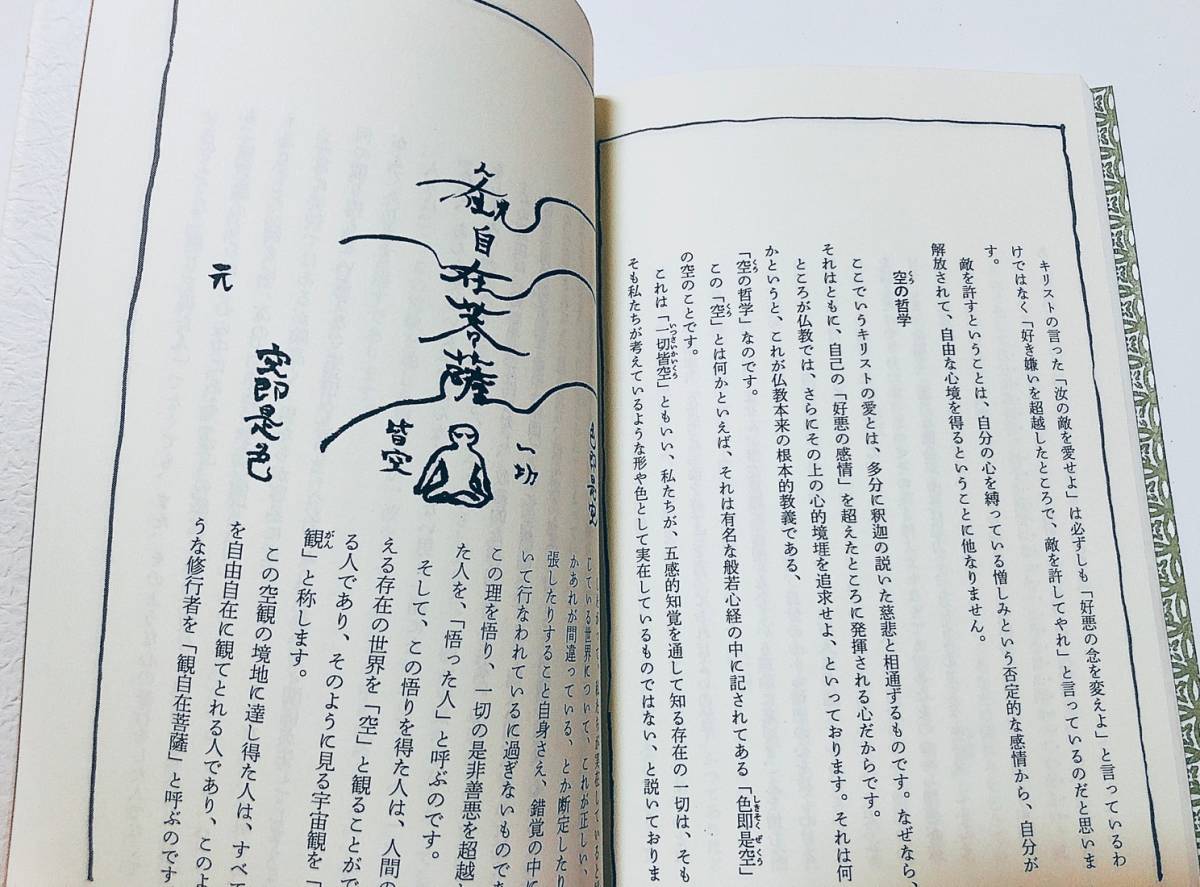 キリストの言った「汝の敵を愛せよ」は必ずしも「好悪の念を変えよ」と言っているわ
けではなく「好き嫌いを超越したところで、敵を許してやれ」と言っているのだと思いま
す。
敵を許すということは、自分の心を縛っている憎しみという否定的な感情から、自分が
解放されて、自由な心境を得るということに他なりません。
空の哲学
ここでいうキリストの愛とは、多分に釈迦の説いた慈悲と相通ずるものです。なぜなら、
それはともに、自己の「好悪の感情」を超えたところに発揮される心だからです。
ところが仏教では、さらにその上の心的境涯を追求せよ、といっております。それは何
かというと、これが仏教本来の根本的教義である、
「空の哲学」なのです。
この「空」とは何かといえば、それは有名な般若心経の中に記されてある「色即是空」
の空のことです。
これは「一切皆空」ともいい、私たちが、五感的知覚を通して知る存在の一切は、そも
そも私たちが考えているような形や色として実在しているものではない、と説いておりま
色即是空
観自在菩薩
一切
皆空
空即是色
元
じている世界について、これが正しい、
かあれが間違っている、とか断定したり
張したりすること自身さえ、錯覚の中に
いて行なわれているに過ぎないもので
この理を悟り、一切の是非善悪を超越し
た人を、「悟った人」と呼ぶのです。
そして、この悟りを得た人は、人間の
える存在の世界を「空」と観ることがで
る人であり、そのように見る宇宙観を「
観」と称します。
この空観の境地に達し得た人は、すべて
を自由自在に観てとれる人であり、このよ
うな修行者を「観自在菩薩」と呼ぶのです